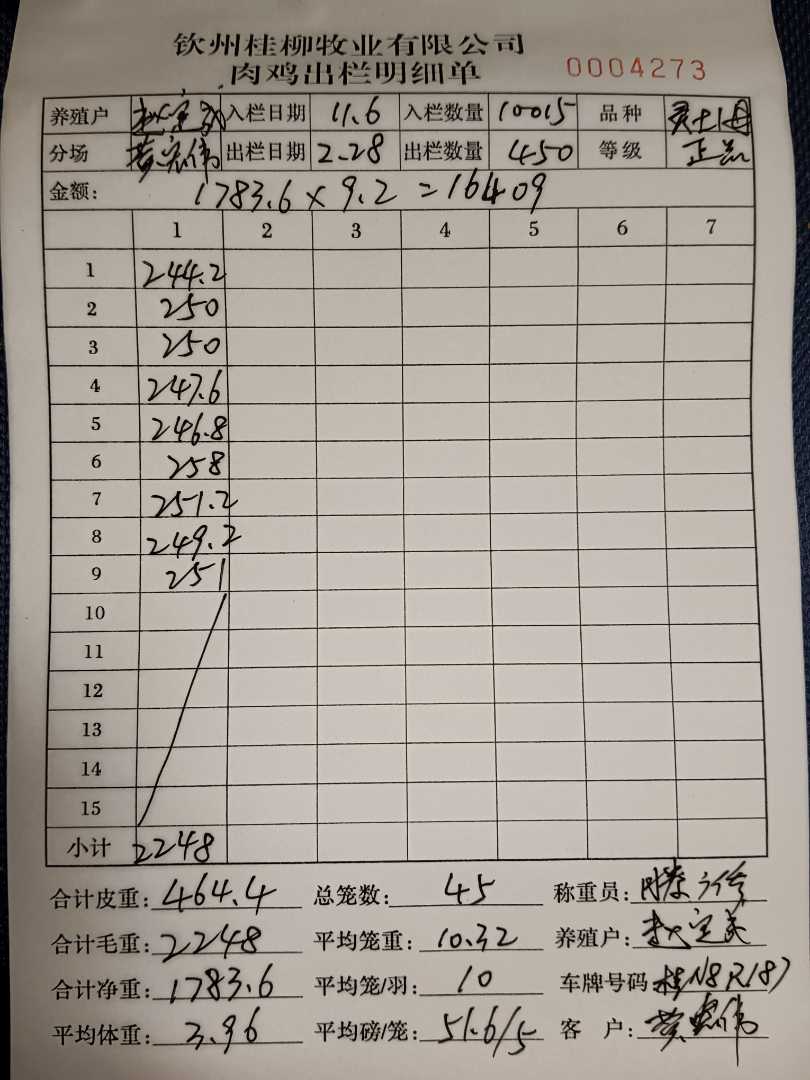 钦州桂柳牧业有限公司
肉鸡出栏明细单 0004273
养殖户 入栏日期 11.6 入栏数量 10015 品种
分场 黄宏伟 出栏日期 2.28 出栏数量 450 等级 正品
金额: 1783.6 × 9.2 = 16409
1 2 3 4 5 6 7
1 244.2
2 250
3 250
4 247.6
5 246.8
6 258
7 251.2
8 249.2
9 251
10
11
12
13
14
15
小计 2248
合计皮重: 464.4 总笼数: 45 称重员:
合计毛重: 2248 平均笼重: 10.32 养殖户:
合计净重: 1783.6 平均笼/羽: 10 车牌号码 桂N8R187
平均体重: 3.96 平均磅/笼: 51.6/5 客 户: 黄宏伟